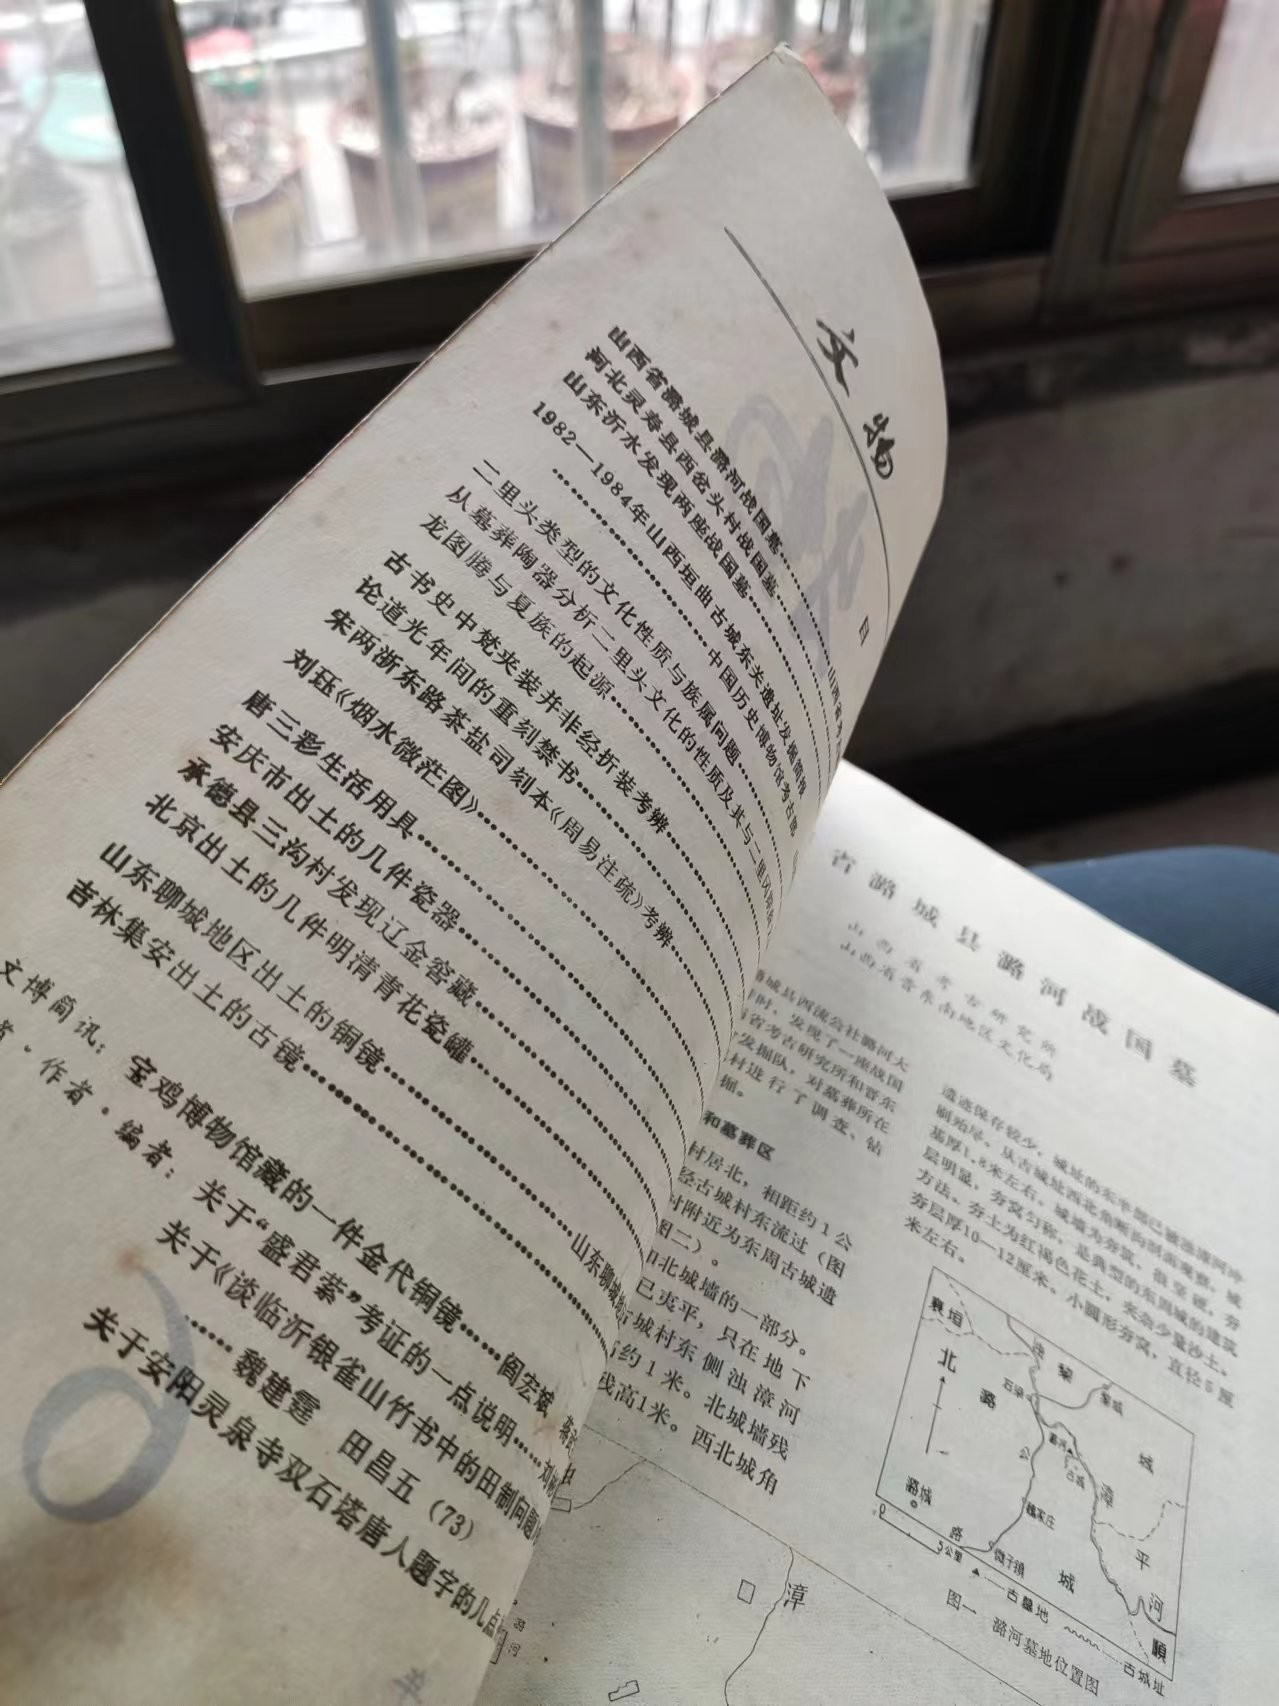 文物
目
山西省潞城县潞河战国墓
河北灵寿县西岔头村战国墓
山东沂水发现两座战国墓
1982—1984年山西垣曲古城东关遗址发掘简报
中国历史博物馆考古部
二里头类型的文化性质与族属问题
从墓葬陶器分析二里头文化的性质及其与二里冈
龙图腾与夏族的起源
古书史中梵夹装并非经折装考辨
论道光年间的重刻禁书
宋两浙东路茶盐司刻本《周易注疏》考辨
刘珏《烟水微茫图》
唐三彩生活用具
安庆市出土的几件瓷器
承德县三沟村发现辽金窖藏
北京出土的几件明清青花瓷罐
山东聊城地区出土的铜镜……山东聊城地
吉林集安出土的古镜
文博简讯：宝鸡博物馆藏的一件金代铜镜……阎宏斌
者·作者·编者：关于“盛君萦”考证的一点说明……刘
关于《谈临沂银雀山竹书中的田制问题
……魏建霆 田昌五（73）
关于安阳灵泉寺双石塔唐人题字的几点
省潞城县潞河战国墓
山西省考古研究所
山西省晋东南地区文化局
城县西流公社潞河大
时，发现了一座战国
省考古研究所和晋东
发掘队，对墓葬所在
村进行了调查、钻
掘。
和墓葬区
村居北，相距约1公
经古城村东流过（图
村附近为东周古城遗
图二）。
北城墙的一部分。
已夷平，只在地下
古城村东侧浊漳河
约1米。北城墙残
残高1米。西北城角
遗迹保存较少，城址的东半部已被浊漳河冲
刷殆尽。从古城址西北角断沟剖面观察，城
基厚1.8米左右，城墙为夯筑，很坚硬，夯
层明显，夯窝匀称，是典型的东周城的建筑
方法。夯土为红褐色花土，夹杂少量沙土，
夯层厚10—12厘米。小圆形夯窝，直径5厘
米左右。
襄垣
北
黎
黎城
石梁
潞
公
潞河
古城
城
漳
潞城
路
魏家庄
平
微子镇
城
河
顺
0
3公里
古墓地
古城址
图一 潞河墓地位置图
漳
潞
河